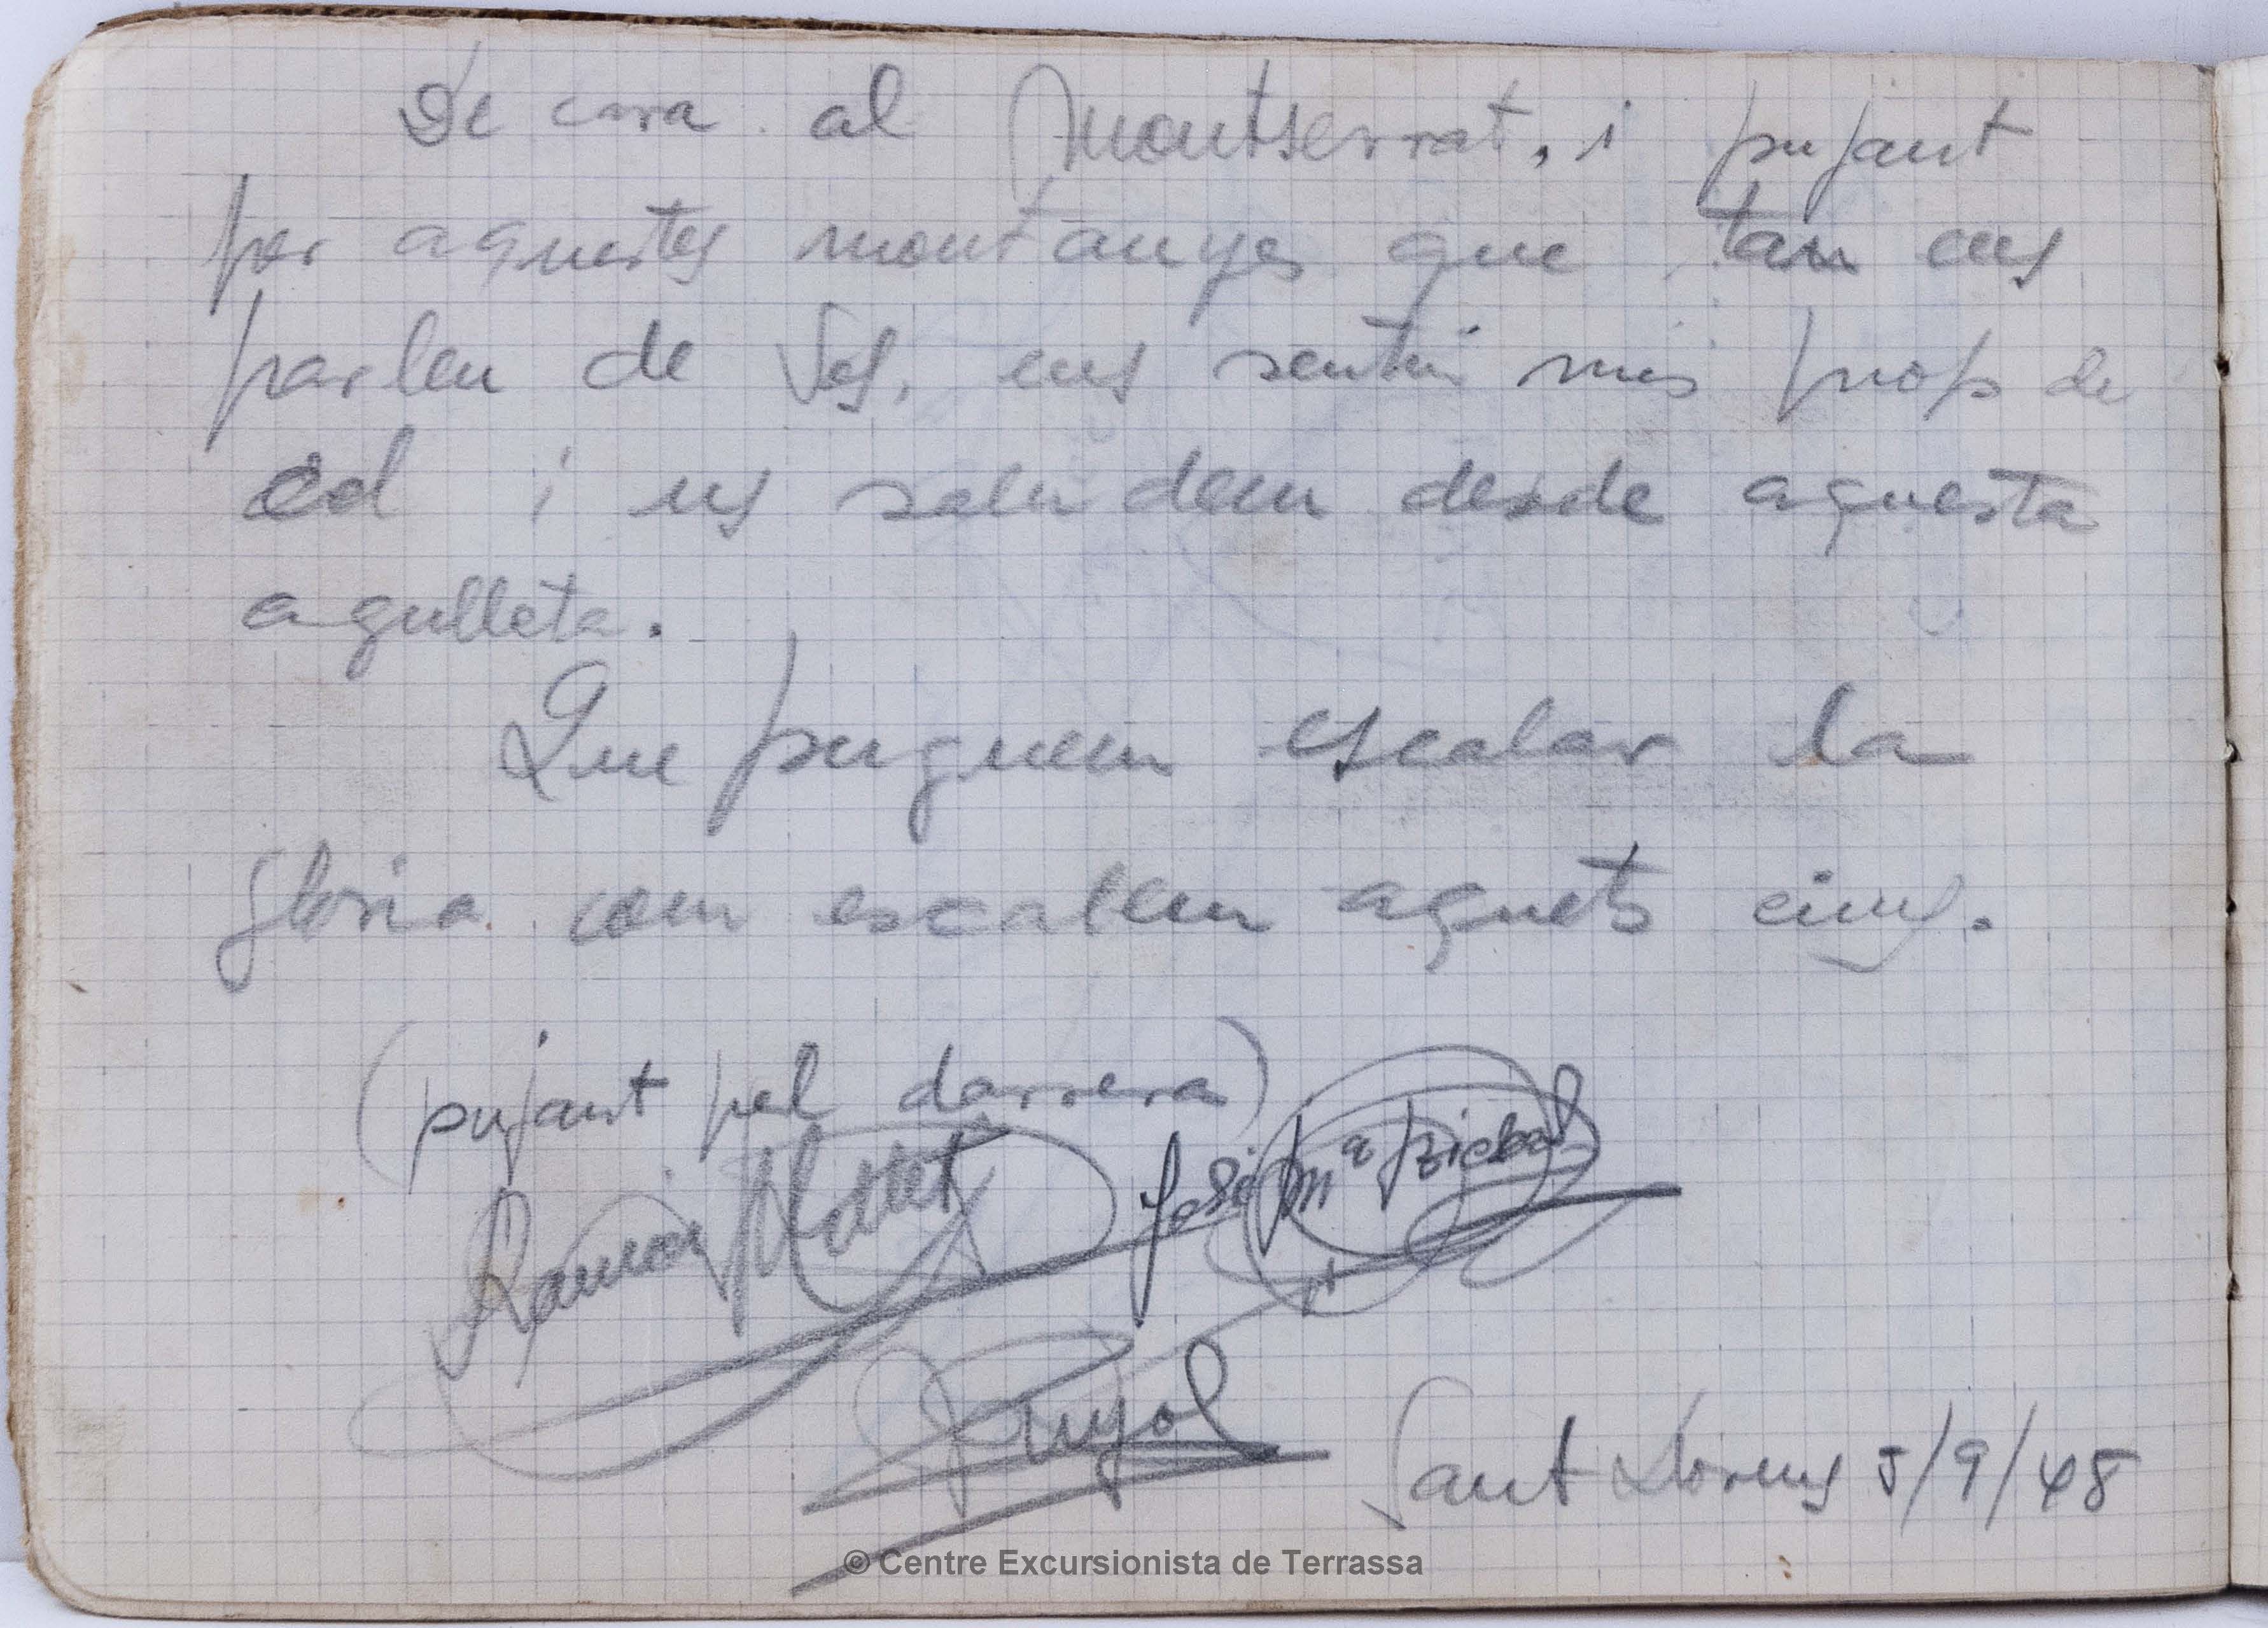 De cara al Montserrat, i pujant
per aquestes montanyes que tan ens
parlen de Vos, ens sentim mes prop de
cel i us saludem desde aquesta
agulleta.
Que puguem escalar la
gloria com escalem aquets cims.
(pujant pel darrera)
Ramon
José Mª
Pujol
Sant Llorens 5/9/48
© Centre Excursionista de Terrassa